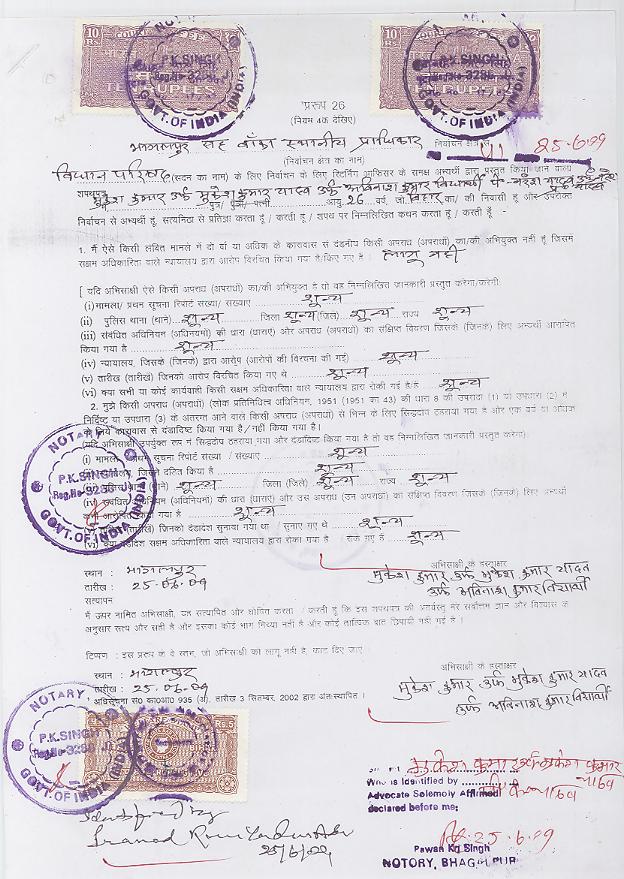 10 RS.
NOTARY
P.K.SINGH
Reg.No 3286
GOVT. OF INDIA (INDIA)
TEN RUPEES
10 RS.
P.K.SINGH
Reg.No 3286
GOVT. OF INDIA (INDIA)
TEN RUPEES
प्ररूप 26
(नियम 4क देखिए)
भागलपुर सह बाँका स्थानीय प्राधिकार निर्वाचन क्षेत्र से 25-6-09
(निर्वाचन क्षेत्र का नाम)
विधान परिषद (सदन का नाम) के लिए निर्वाचन के लिए रिटर्निंग आफिसर के समक्ष अभ्यर्थी द्वारा प्रस्तुत किया जाने वाला
शपथपत्र
मुकेश कुमार उर्फ मुकेश कुमार यादव उर्फ अविनाश कुमार विद्यार्थी
पुत्र / पुत्री / पत्नी आयु 26 वर्ष, जो बिहार का/ की निवासी हूं और उपरोक्त
निर्वाचन से अभ्यर्थी हूं, सत्यनिष्ठा से प्रतिज्ञा करता हूं / करती हूं / शपथ पर निम्नलिखित कथन करता हूं / करती हूँ -
1. मैं ऐसे किसी लंबित मामले में दो वर्ष या अधिक के कारावास से दंडनीय किसी अपराध (अपराधों) का/की अभियुक्त नहीं हूं जिसमें
सक्षम अधिकारिता वाले न्यायालय द्वारा आरोप विरचित किया गया है/किए गए हैं । लागू नहीं
[ यदि अभिसाक्षी ऐसे किसी अपराध (अपराधों) का/की अभियुक्त है तो वह निम्नलिखित जानकारी प्रस्तुत करेगा/करेगी
(i) मामला/ प्रथम सूचना रिपोर्ट संख्या/ संख्याएं शून्य
(ii) पुलिस थाना (थाने) शून्य जिला (जिले) शून्य राज्य शून्य
(iii) संबंधित अधिनियम (अधिनियमों) की धारा (धाराएं) और अपराध (अपराधों) का संक्षिप्त विवरण जिसके (जिनके) लिए अभ्यर्थी आरोपित
किया गया है शून्य
(iv) न्यायालय, जिसके (जिनके) द्वारा आरोप (आरोपों की विरचना की गई) शून्य
(v) तारीख (तारीखें) जिनको आरोप विरचित किए गए थे शून्य
(vi) क्या सभी या कोई कार्यवाही किसी सक्षम अधिकारिता वाले न्यायालय द्वारा रोकी गई है/हैं शून्य
2. मुझे किसी अपराध (अपराधों) (लोक प्रतिनिधित्व अधिनियम, 1951 (1951 का 43) की धारा 8 की उपधारा (1) या उपधारा (2) में
निर्दिष्ट या उपधारा (3) के अंतर्गत आने वाले किसी अपराध (अपराधों) से भिन्न के लिए सिद्धदोष ठहराया गया है और एक वर्ष या अधिक
के लिये कारावास से दंडादिष्ट किया गया है / नहीं किया गया है।
(यदि अभिसाक्षी उपर्युक्त रूप में सिद्धदोष ठहराया गया और दंडादिष्ट किया गया है तो वह निम्नलिखित जानकारी प्रस्तुत करेगा)
(i) मामला / प्रथम सूचना रिपोर्ट संख्या / संख्याएं शून्य
जिसने दंडित किया है शून्य
शून्य जिला (जिले) शून्य राज्य शून्य
अधिनियम (अधिनियमों) की धारा (धाराएं) और उस अपराध (उन अपराधों) का संक्षिप्त विवरण जिसके (जिनके) लिए अभ्यर्थी
गया है शून्य
जिनको दंडादेश सुनाया गया था / सुनाए गए थे शून्य
(vi) क्या दंडादेश सक्षम अधिकारिता वाले न्यायालय द्वारा रोका गया है / रोके गए हैं शून्य
NOTARY
P.K.SINGH
Reg.No 3286
GOVT. OF INDIA (INDIA)
अभिसाक्षी के हस्ताक्षर
स्थान : भागलपुर
मुकेश कुमार उर्फ मुकेश कुमार यादव
तारीख : 25-06-09
उर्फ अविनाश कुमार विद्यार्थी
सत्यापन
मैं ऊपर नामित अभिसाक्षी, यह सत्यापित और घोषित करता / करती हूं कि इस शपथपत्र की अंतर्वस्तु मेरे सर्वोत्तम ज्ञान और विश्वास के
अनुसार सत्य और सही है और इसका कोई भाग मिथ्या नहीं है और कोई तात्विक बात छिपायी नहीं गई है ।
टिप्पण : इस प्ररूप के वे स्तंभ, जो अभिसाक्षी को लागू नहीं है, काट दिए जाएं
स्थान : भागलपुर
अभिसाक्षी के हस्ताक्षर
तारीख : 25-06-09
मुकेश कुमार उर्फ मुकेश कुमार यादव
उर्फ अविनाश कुमार विद्यार्थी
* अधिसूचना सं0 का0आ0 935 (अ), तारीख 3 सितम्बर, 2002 द्वारा अंतःस्थापित ।
NOTARY
P.K.SINGH
Reg.No 3286
GOVT. OF INDIA (INDIA)
RS.5
मुकेश कुमार उर्फ मुकेश कुमार
यादव
Who is Identified by
Advocate Solemnly Affirmed
declared before me.
Identified by
25/6/09
25-6-09
Pawan Kr. Singh
NOTARY, BHAGALPUR